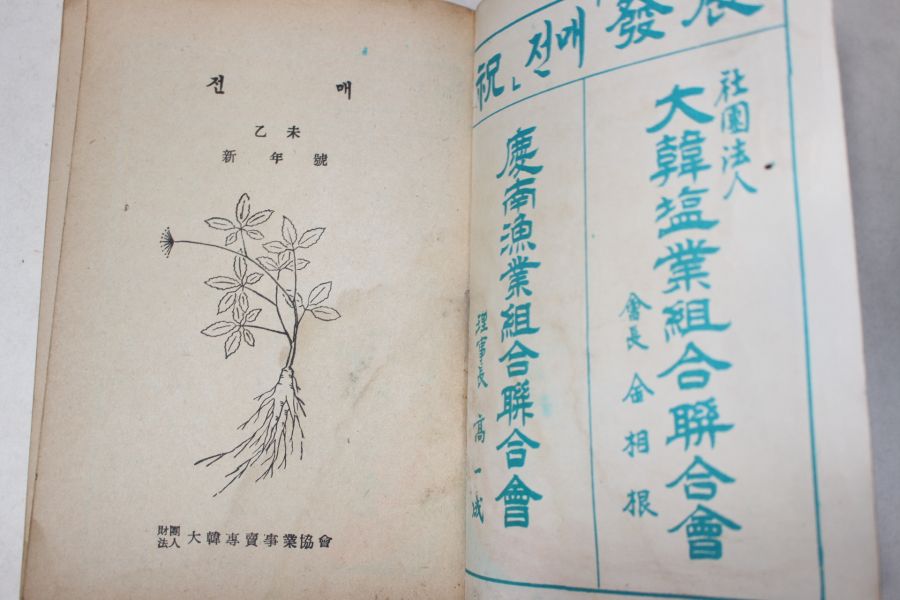 전매
乙未
新年號
財團法人 大韓專賣事業協會
祝 「전매 發展
社團法人
大韓塩業組合聯合會
會長 金相根
慶南漁業組合聯合會
理事長 高一成